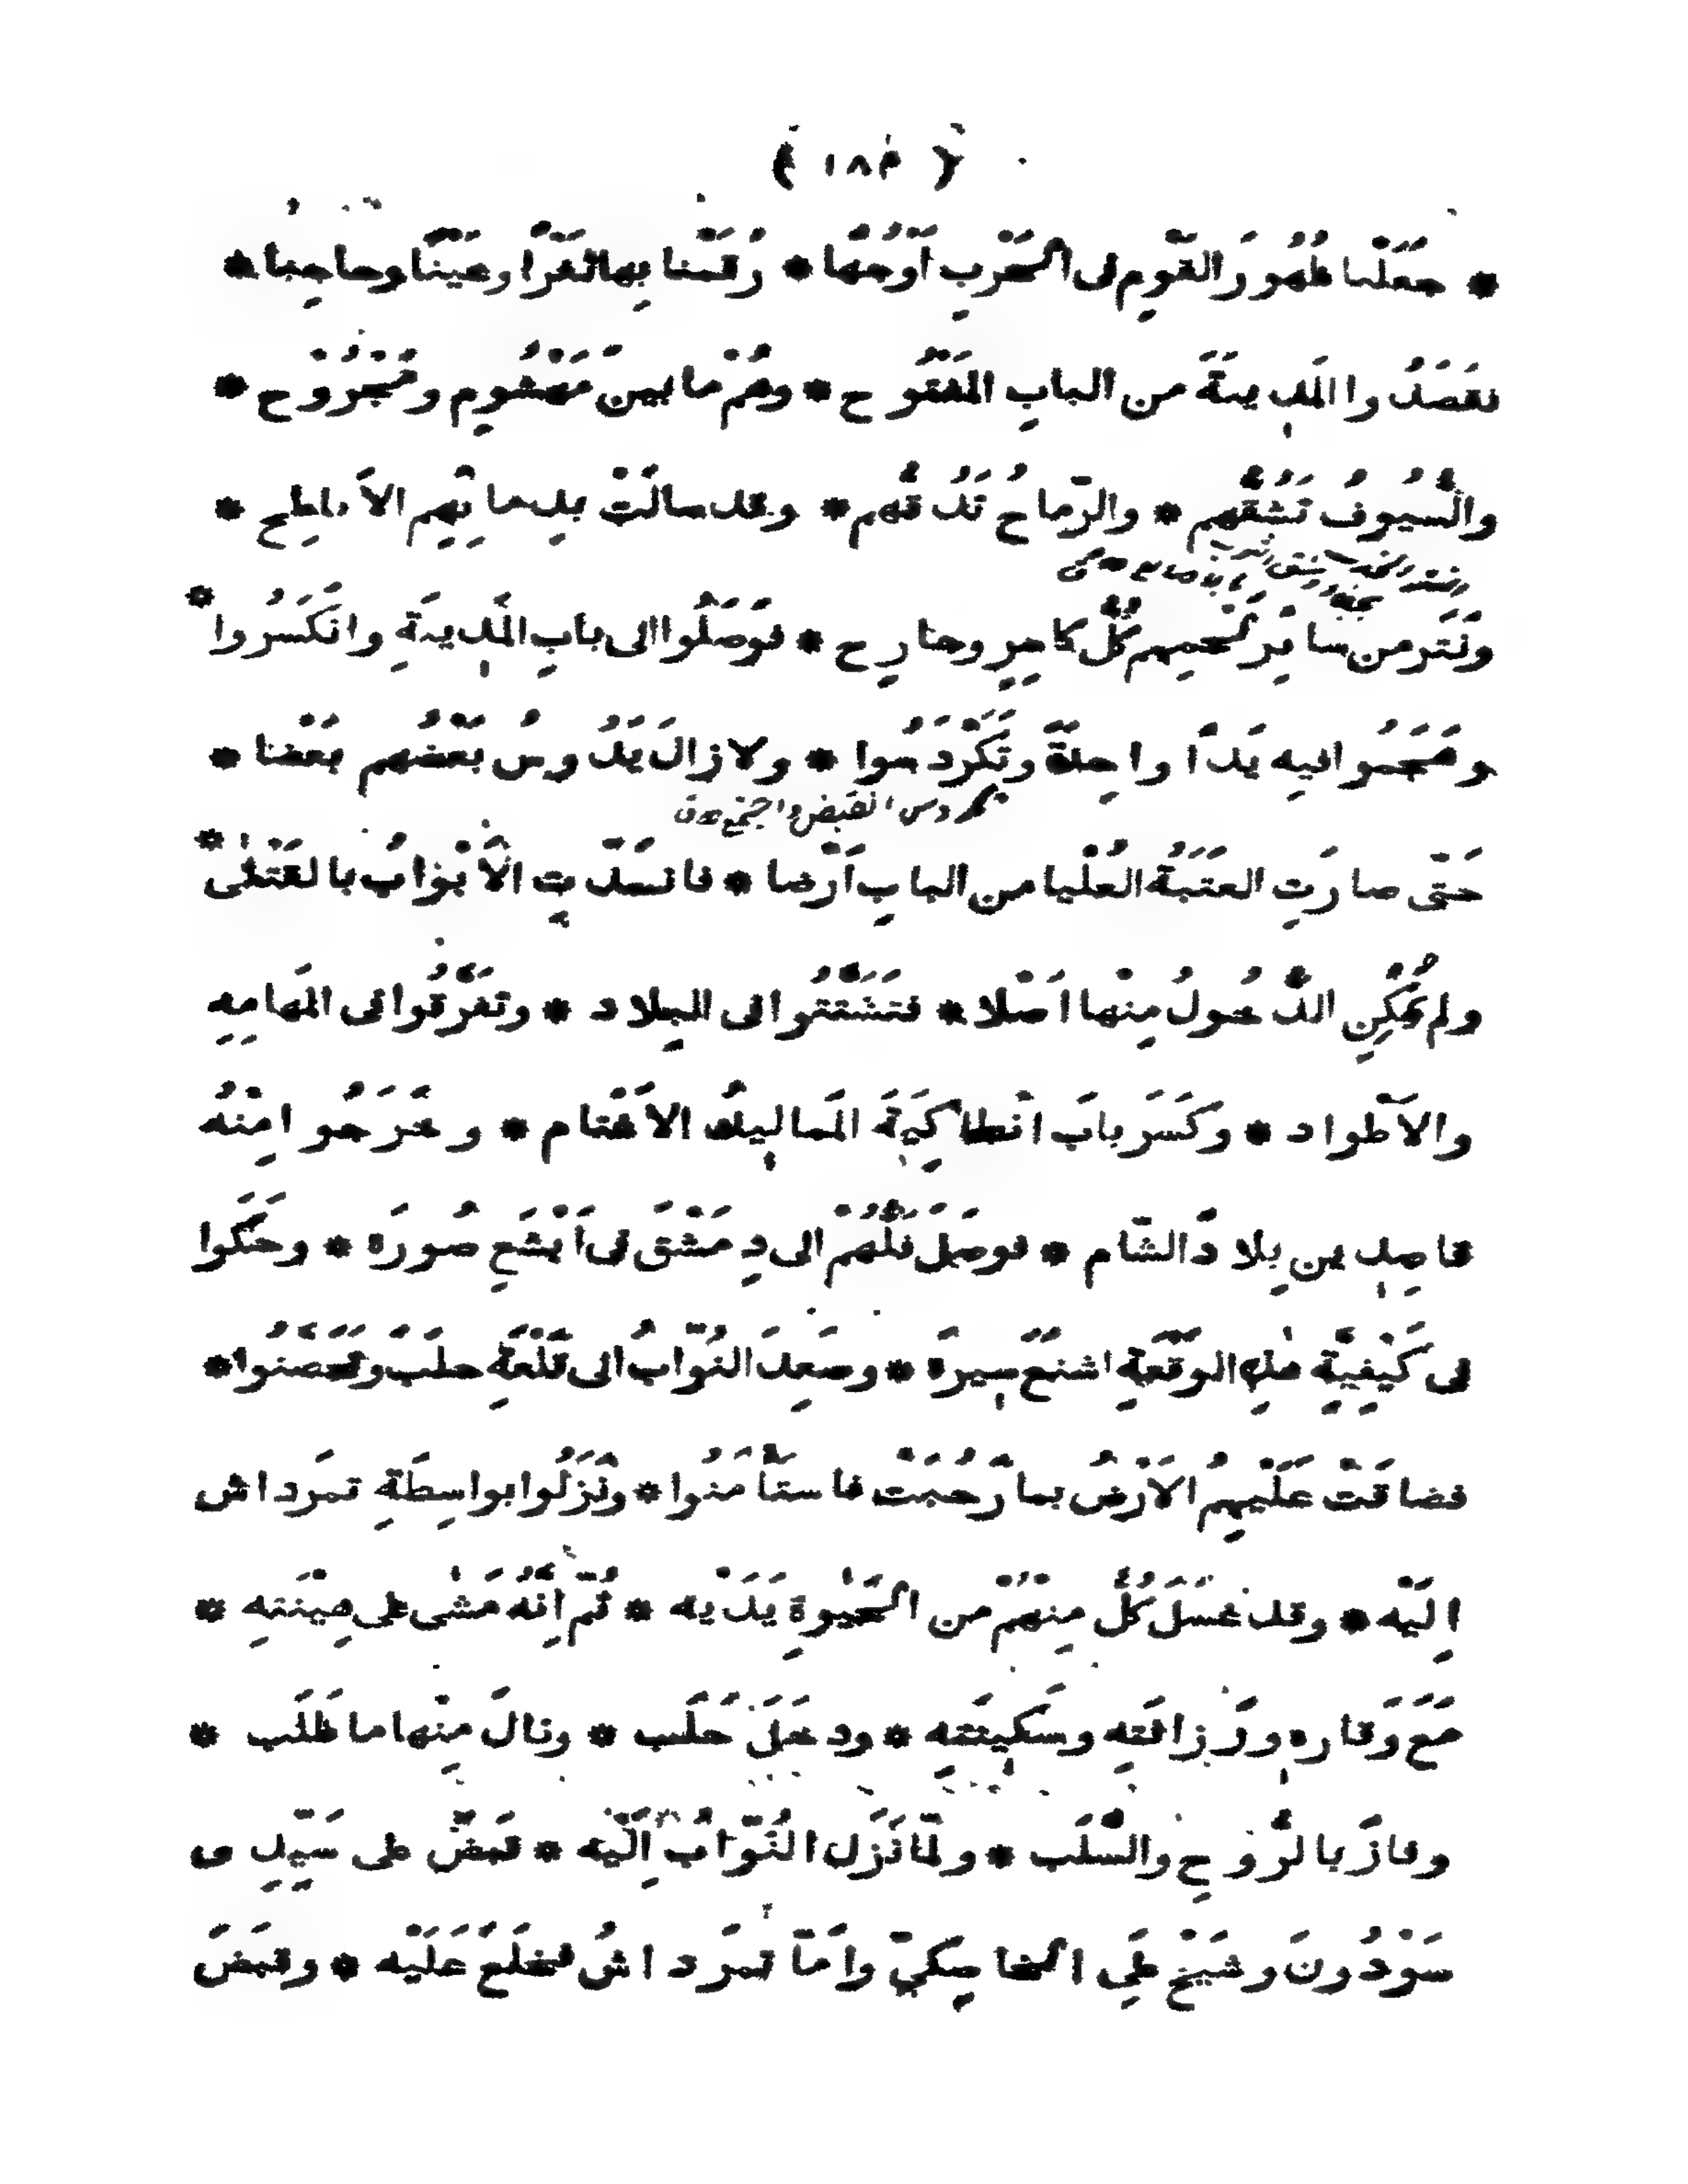 ( ١٨٣ )
* جعَلْنا ظُهُورَ القَوْمِ فى الحَرْبِ اَوْجُهًا * رَقَمْنا بِها ثَغْرًا وعَيْنًا وحاجِبا *
فقَصَدُوا المَدِينَةَ من البابِ المَفْتُوح * وهُمْ ما بين مَهْشُوم ومَجْرُوْح *
والسُّيُوفُ تَشُقُّهم * والرّماحُ تَدُقُّهم * وقد سالَتْ بدِمائِهِم الاَباطِح *
ونَتَر من سائِر لَحْمِهم كُلُّ كاسِرٍ وجارِح * فوَصَلُوا الى بابِ المَدِينَةِ وانكَسَرُوا *
وهَجَمُوا فيه يَدًا واحِدَةً وتَكَرْدَسُوا * ولا زالَ يَدُوسُ بَعْضُهم بَعْضا *
تكردس انقبض واجتمع
حَتّى صارَتِ العَتَبَةُ العُلْيا من البابِ اَرْضا * فانسَدّتِ الاَبْوابُ بالقَتْلٰى *
ولم يُمْكِنِ الدُّخُولُ مِنْها اَصْلا * فتَشَتَّتُوا فى البِلاد * وتفَرَّقُوا فى المَهامِهِ
والاَطْواد * وكَسَر بابَ انْطاكِيَةَ المَمالِيكُ الاَغْتام * وخَرَجُوا مِنْهُ
قاصِدِين بِلادَ الشّام * فوصَلَ فَلُّهُمْ الى دِمَشْقَ فى اَبْشَعِ صُورَة * وحَكَوا
فى كَيْفِيَّةِ هٰذِهِ الوَقْعَةِ اشنعَ سِيرَة * وصَعِدَ النُوّابُ الى قَلْعَةِ حلَبَ وتَحَصَّنُوا *
فضاقَتْ عَلَيْهِمُ الاَرْضُ بما رَحُبَتْ فاستَأمَنُوا * ونَزَلُوا بواسِطَةِ تمَرداش
اِلَيْه * وقد غسَلَ كُلٌّ مِنهُمْ من الحَيٰوةِ يَدَيْه * ثُمّ اِنَّهُ مَشٰى على هِينَتِهِ *
مَعَ وَقارِه ورَزانَتِهِ وسَكِينَتِهِ * ودخَلَ حَلَب * ونالَ مِنْها ما طَلَب *
وفازَ بالرُّوحِ والسَّلَب * ولَمّا نَزَل النُوّابُ اِلَيْه * قبَضَ على سَيِّدِى
سَوْدُونَ وشَيْخَ عَلَى الخاصِكِيِّ واَمّا تمَرداشُ فخلَعَ عَلَيْه * وقبَضَ